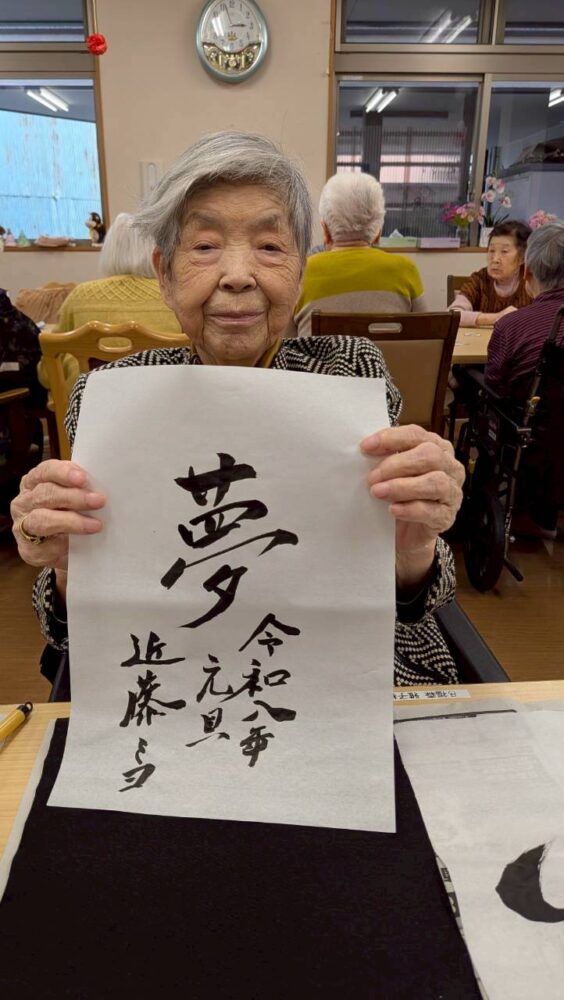 夢
令和八年
元旦
近藤ミヨ